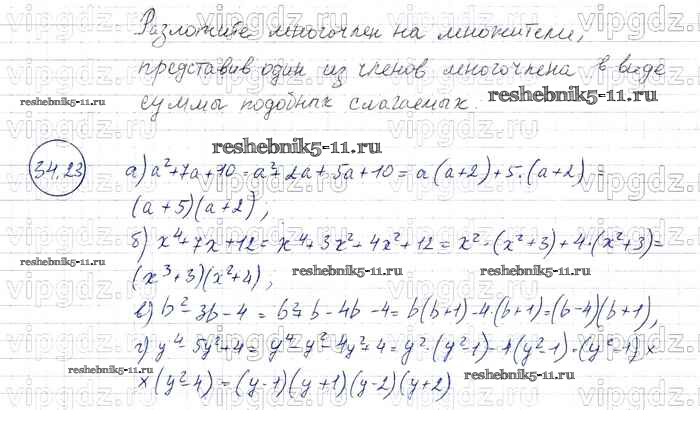 Разложите многочлен на множители,
представив один из членов многочлена в виде
суммы подобных слагаемых.
reshebnik5-11.ru
reshebnik5-11.ru
reshebnik5-11.ru
34.23
а) a²+7a+10 = a²+2a+5a+10 = a(a+2)+5·(a+2) =
(a+5)(a+2);
б) x⁴+7x+12 = x⁴+3x²-4x²+12 = x²·(x²+3)+4·(x²+3)=
(x³+3)(x²+4);
reshebnik5-11.ru
reshebnik5-11.ru
в) b²-3b-4 = b²+b-4b-4 = b(b+1)-4·(b+1)=(b-4)(b+1);
г) y⁴-5y²+4 = y⁴-y²-4y²+4 = y²·(y²-1)-4(y²-1)=(y²-1)×
reshebnik5-11.ru
reshebnik5-11.ru
×(y²-4) = (y-1)(y+1)(y-2)(y+2)
vipgdz.ru